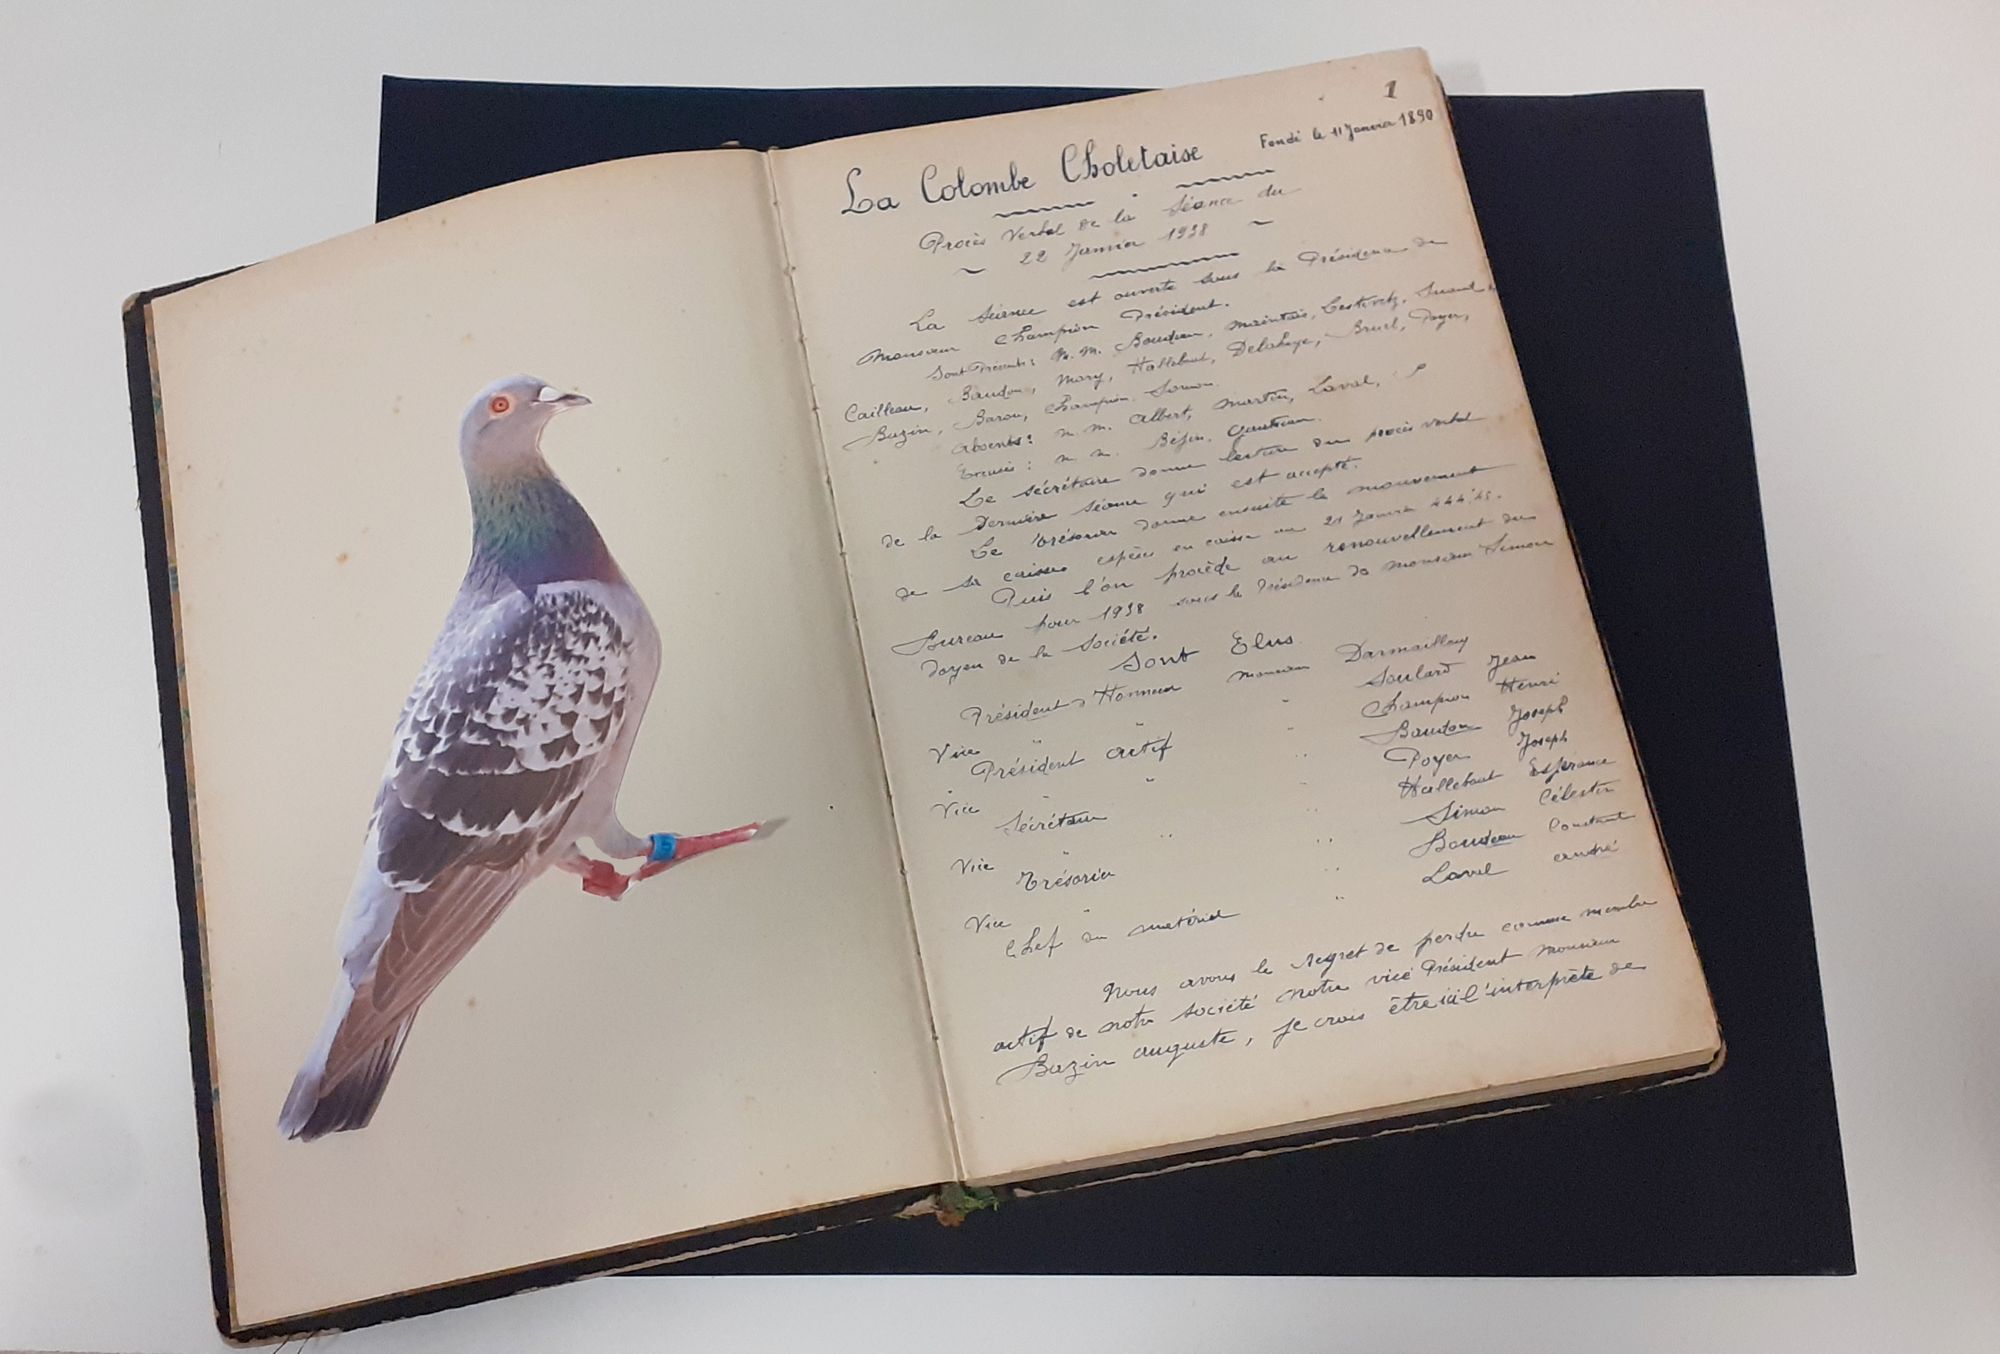 1
Fondé le 11 Janvier 1890
La Colombe Choletaise
Procès Verbal de la Séance du
22 Janvier 1938
La Séance est ouverte sous la Présidence de
Monsieur Champion Président.
Sont Présents: M. M. Baudeau, Maintais,
Cailleau, Baudou, Mary, Hallebaut, Delahaye, Bruel, Poyer,
Bazin, Baron, Champion. Simon.
Absents: M. M. Albert, Martin, Laval,
Excusés: M. M. Béfin. Gautreau.
Le Sécrétaire donne lecture du procès verbal
de la Dernière Séance qui est accepté.
Le Trésorier donne ensuite le mouvement
de sa caisse espèces en caisse au 21 Janvier 444,45.
Puis l'on procède au renouvellement du
Bureau pour 1938 sous la Présidence de Monsieur Simon
Doyen de la Société.
Sont Elus.
Président d'Honneur Monsieur Darmaillacq
Vice " " Soulard Jean
Président actif " Champion Henri
Vice " " Baudou Joseph
Sécrétaire " Poyer Joseph
Vice " " Hallebaut Espérance
Trésorier " Simon Célestin
Vice " " Baudeau Constant
Chef du matériel " Laval André
Nous avons le regret de perdre comme membre
actif de notre société notre vice Président Monsieur
Bazin auguste, je crois être ici l'interprète de
5